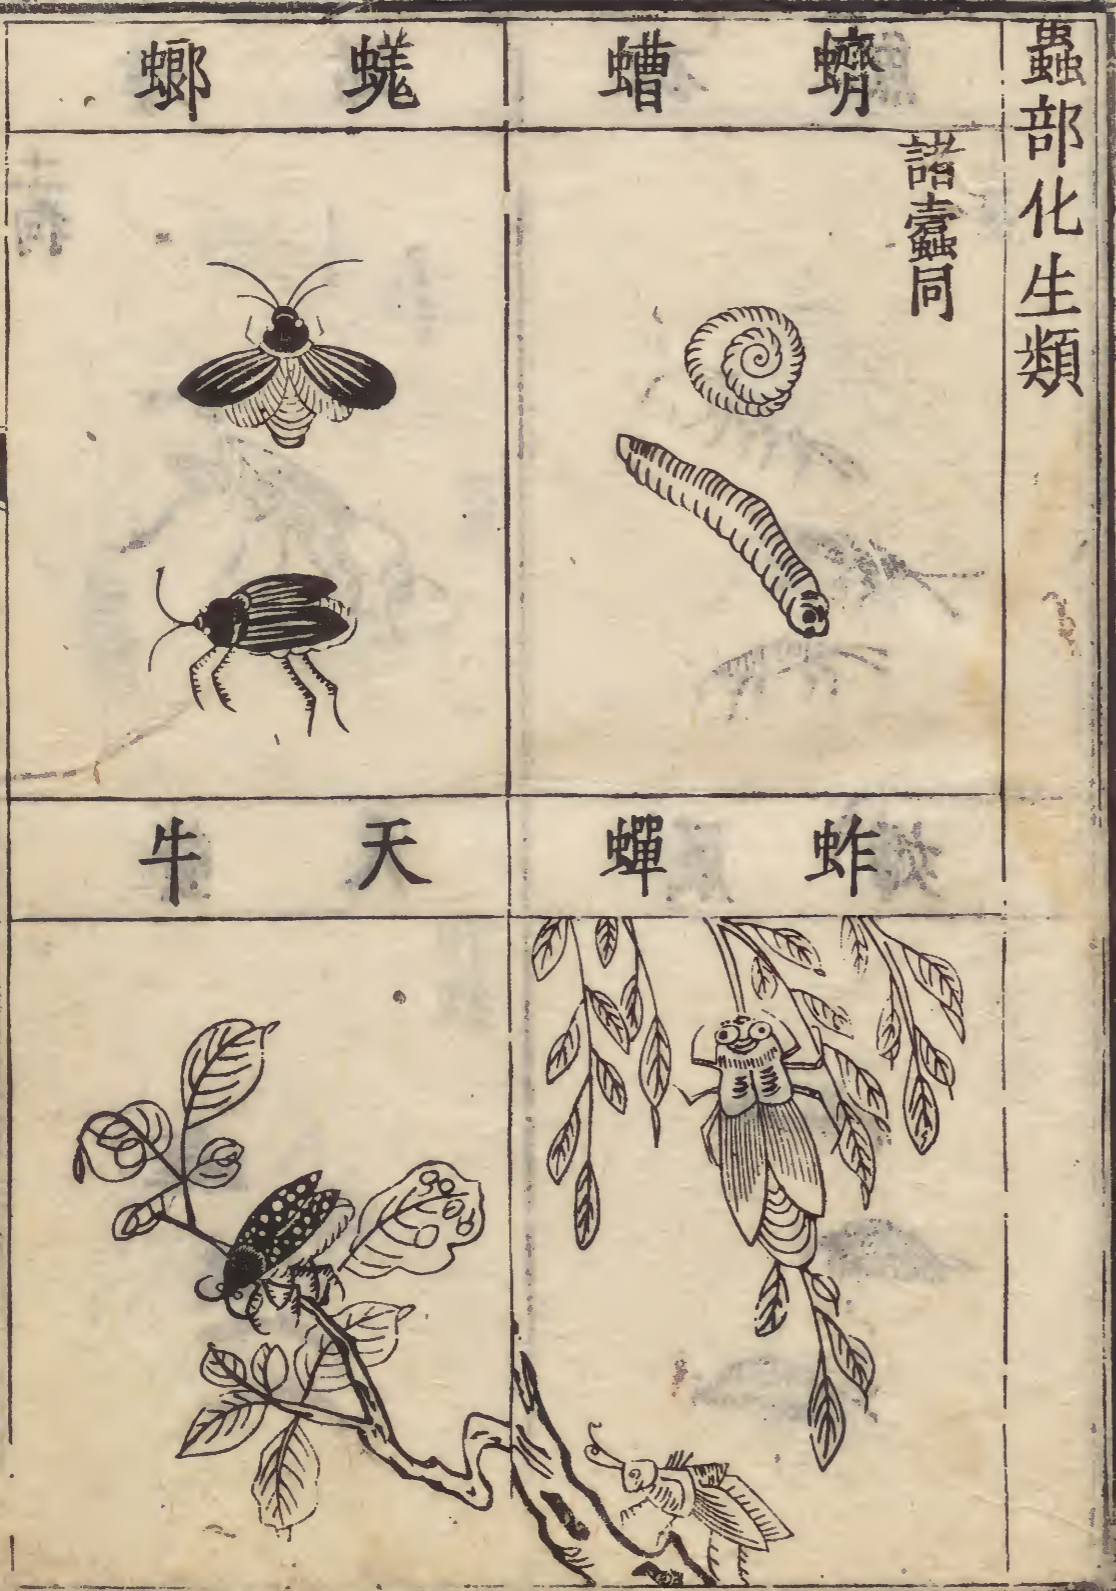 蟲部化生類
蠐螬
諸蠹同
蜣螂
蚱蟬
天牛